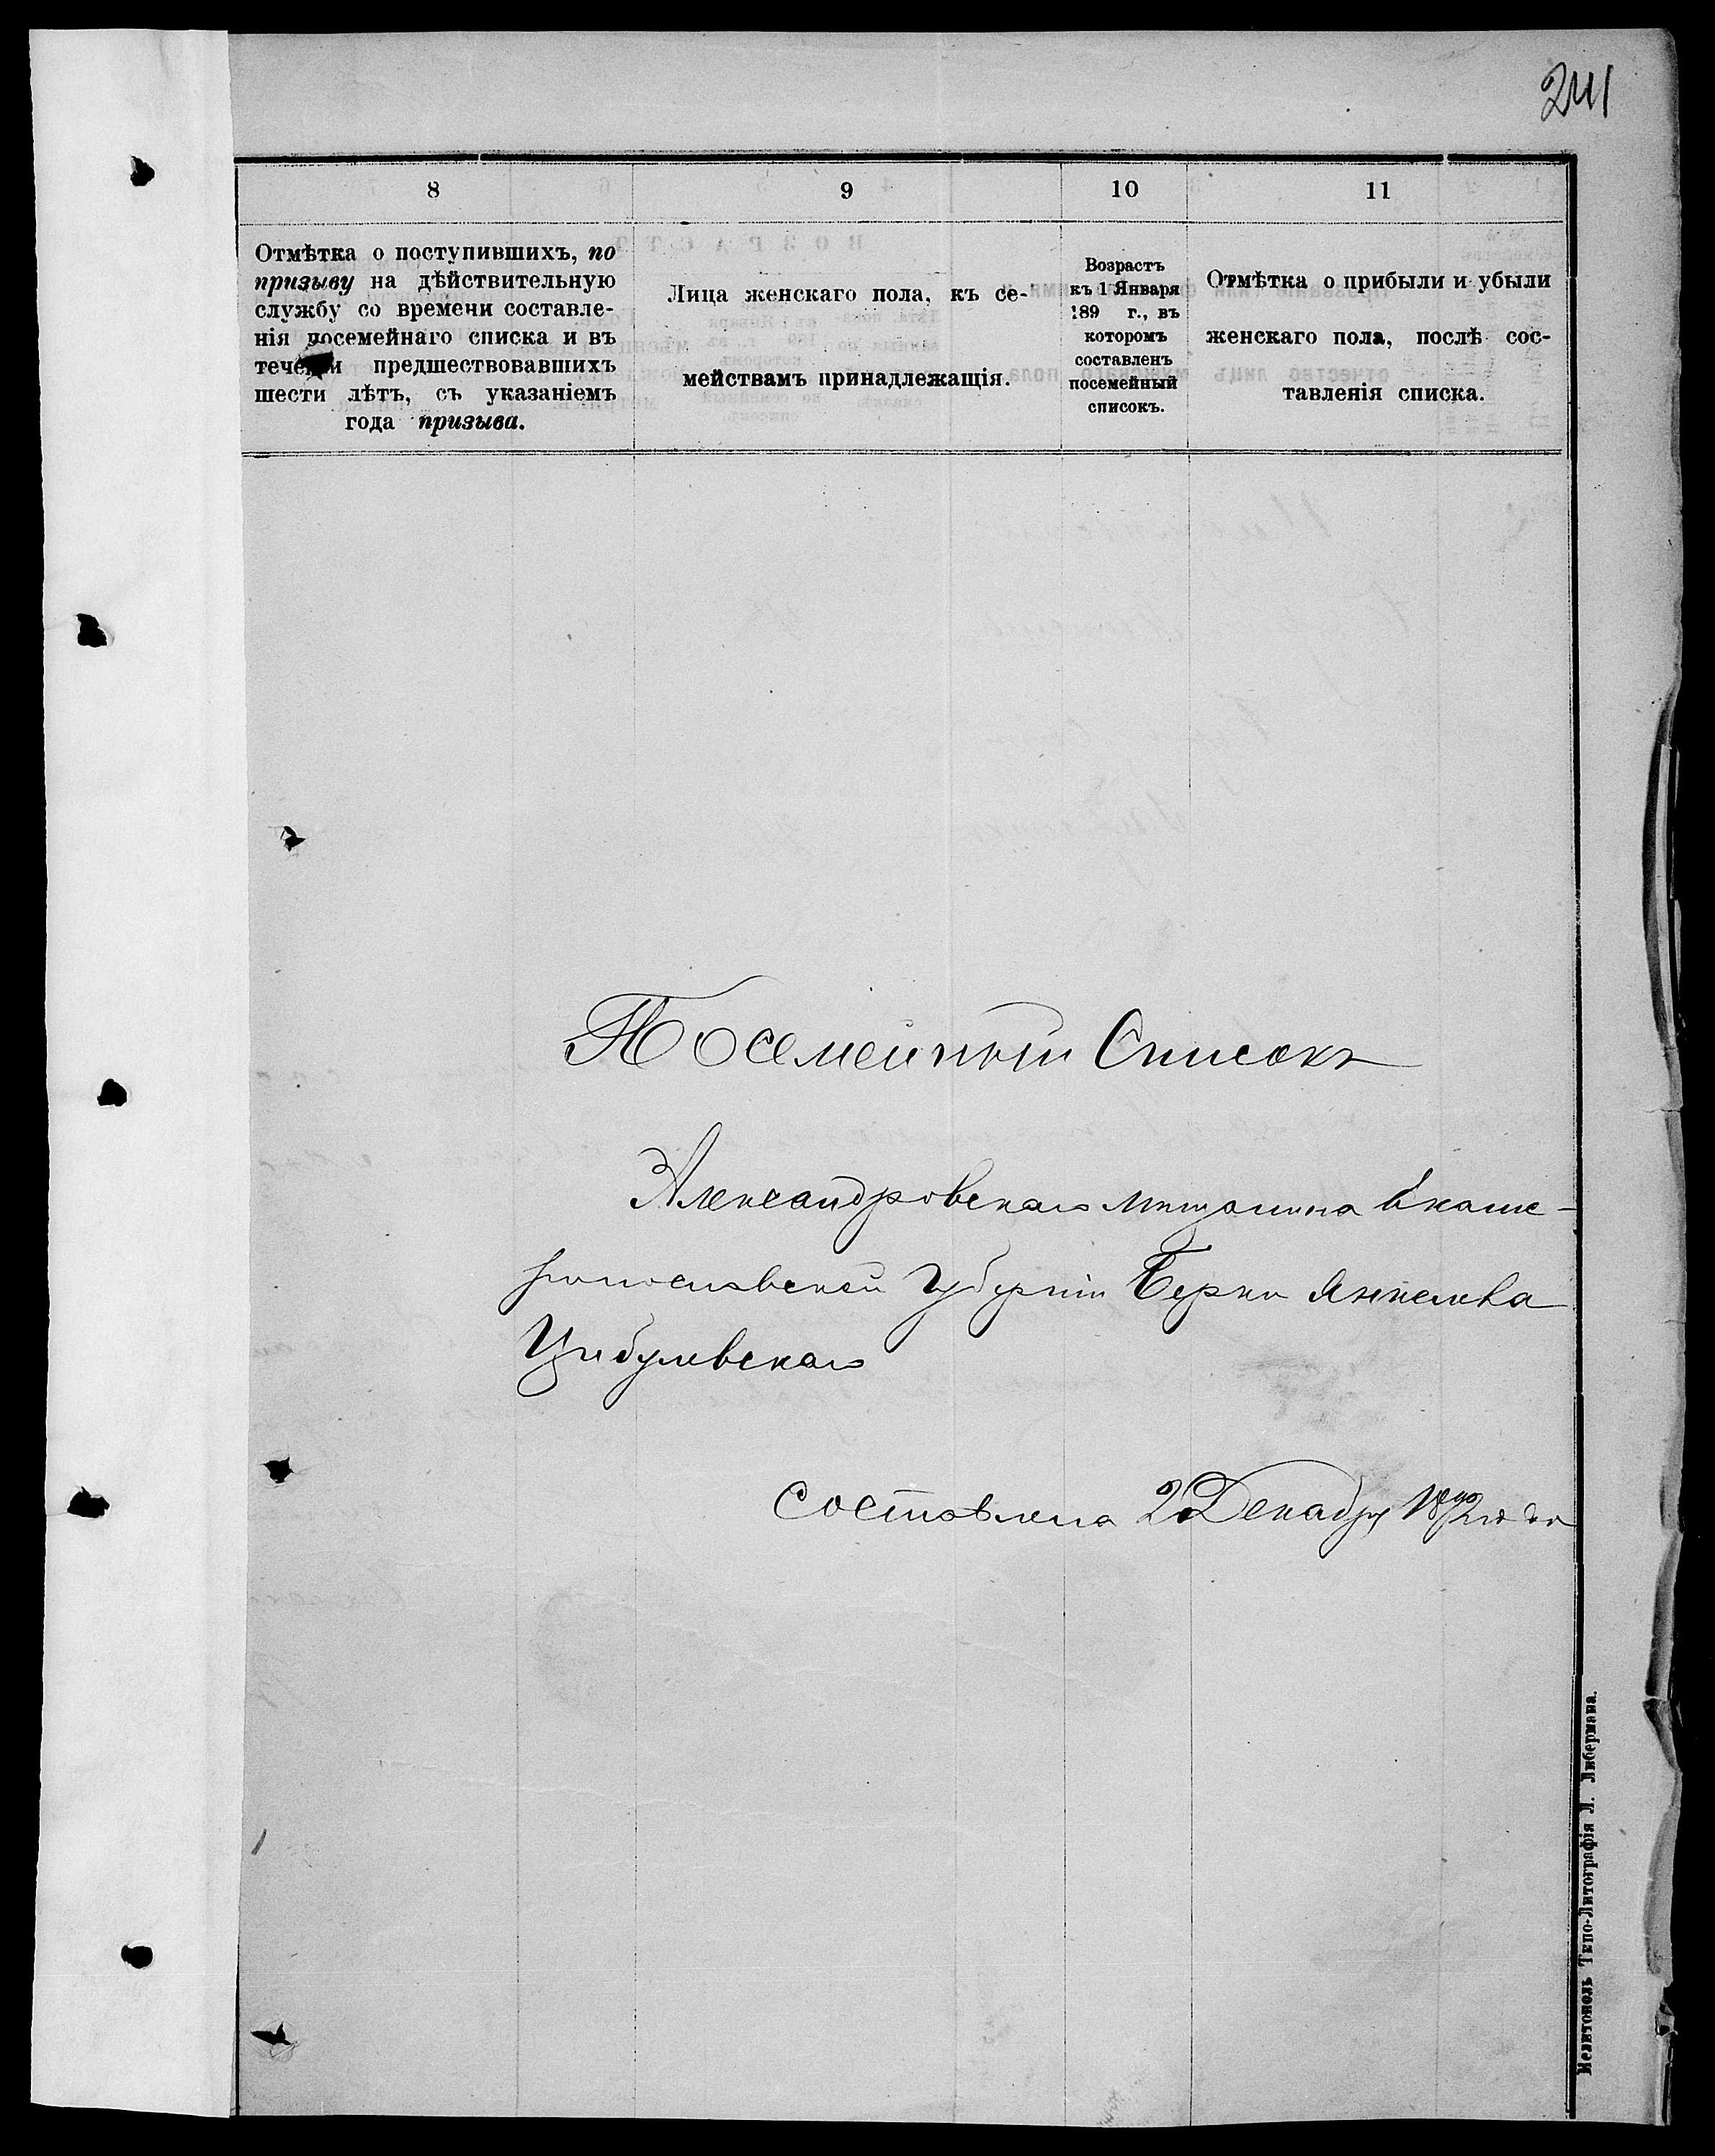 241
8 9 10 11
Отмѣтка о поступившихъ, по
призыву на дѣйствительную
службу со времени составле-
нія посемейнаго списка и въ
теченіи предшествовавшихъ
шести лѣтъ, съ указаніемъ
года призыва.
Лица женскаго пола, къ се-
мействамъ принадлежащія.
Возрастъ
къ 1 Января
189 г., въ
которомъ
составленъ
посемейный
списокъ.
Отмѣтка о прибыли и убыли
женскаго пола, послѣ сос-
тавленія списка.
Посемейный Списокъ
Александровскаго мѣщанина Екате-
ринославской Губерніи Берки Янкелева
Цибулевскаго
Составлена 2 Декабря 1892 года
Мелитополь Типо-Литографія Л. Либермана.